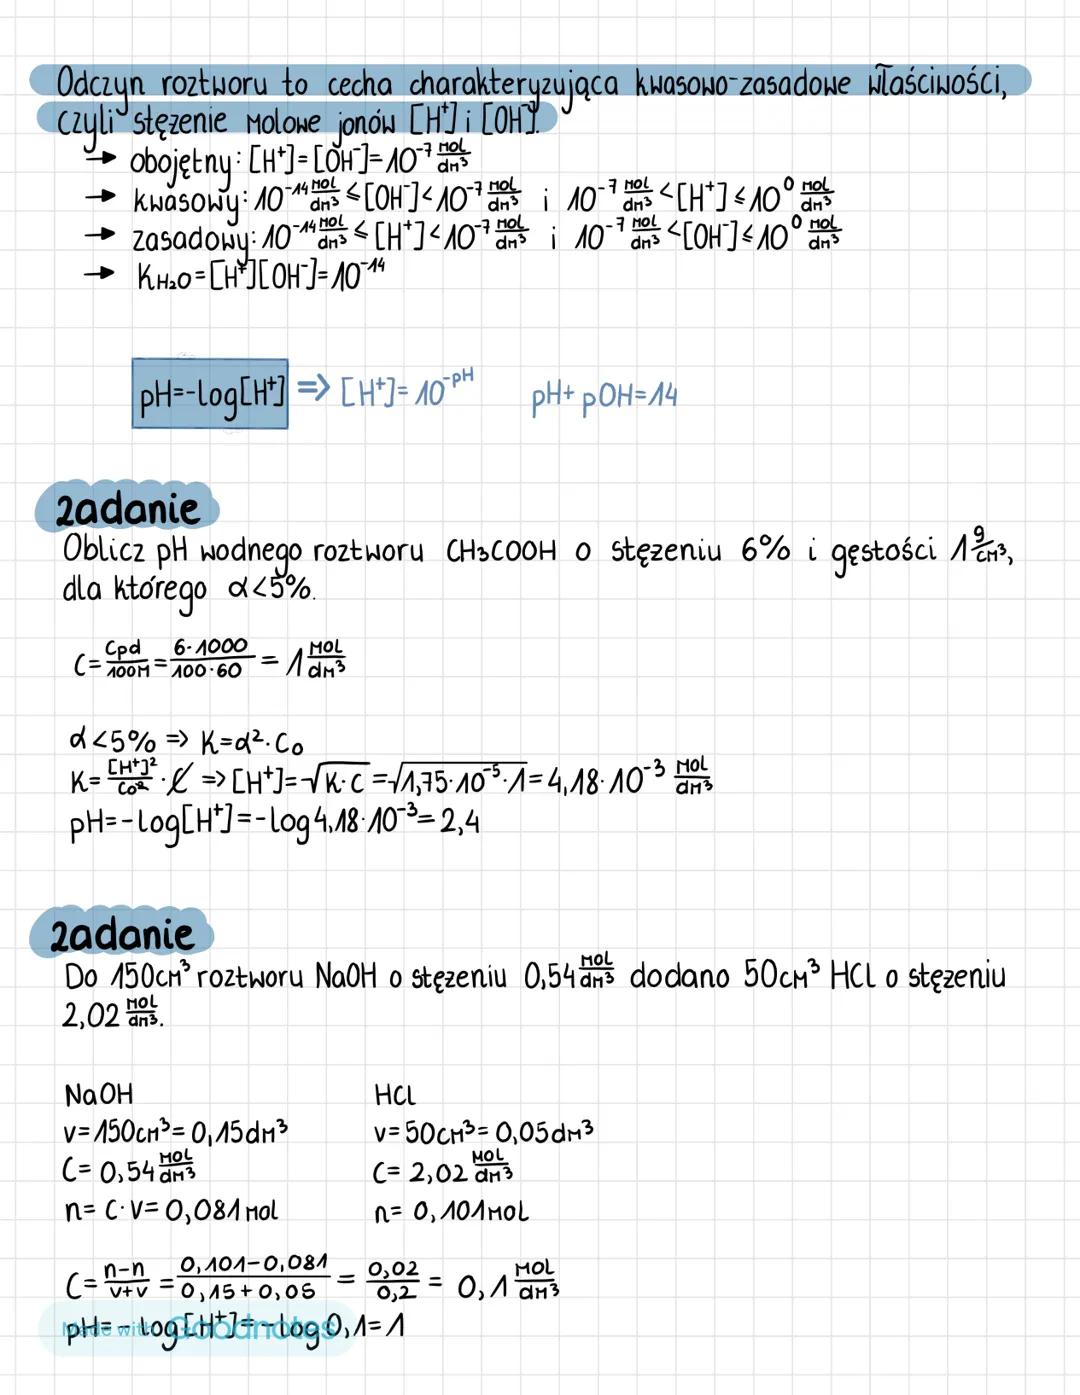 Odczyn roztworu to cecha charakteryzująca kwasowo-zasadowe właściwości,
czyli stężenie molowe jonów [H⁺] i [OH⁻].
→ obojętny: [H⁺]=[OH⁻]=10⁻⁷ mol/dm³
→ kwasowy: 10⁻¹⁴ mol/dm³ ≤ [OH⁻] < 10⁻⁷ mol/dm³ i 10⁻⁷ mol/dm³ < [H⁺] ≤ 10⁰ mol/dm³
→ zasadowy: 10⁻¹⁴ mol/dm³ ≤ [H⁺] < 10⁻⁷ mol/dm³ i 10⁻⁷ mol/dm³ < [OH⁻] ≤ 10⁰ mol/dm³
→ KH₂O=[H⁺][OH⁻]=10⁻¹⁴
pH=-log[H⁺] => [H⁺]=10^-pH pH+pOH=14
zadanie
Oblicz pH wodnego roztworu CH₃COOH o stężeniu 6% i gęstości 1 g/cm³,
dla którego α<5%.
C = Cpd/100M = 6·1000/100·60 = 1 mol/dm³
α<5% => K=α²·C₀
K = [H⁺]²/C₀² · C => [H⁺]=√K·C = √1,75·10⁻⁵·1 = 4,18·10⁻³ mol/dm³
pH=-log[H⁺]=-log4,18·10⁻³=2,4
zadanie
Do 150cm³ roztworu NaOH o stężeniu 0,54 mol/dm³ dodano 50cm³ HCl o stężeniu
2,02 mol/dm³.
NaOH HCl
v=150cm³=0,15dm³ v=50cm³=0,05dm³
C=0,54 mol/dm³ C=2,02 mol/dm³
n=C·V=0,081mol n=0,101mol
C = n-n/v+v = 0,101-0,081/0,15+0,05 = 0,02/0,2 = 0,1 mol/dm³
pH=-log[H⁺]=-log0,1=1
Made with Goodnotes